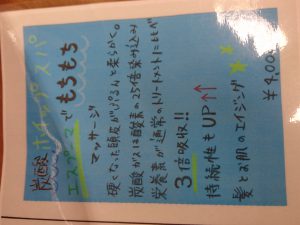 炭酸
ホイップスパ
エスプーマでもちもち
マッサージ
硬くなった頭皮がぷるんと柔らかく。
炭酸ガスは酸素の25倍染み込み
栄養素が通常のトリートメントに比べ
3倍吸収!!
持続性もUP↑↑
髪とお肌のエイジング
¥4,000